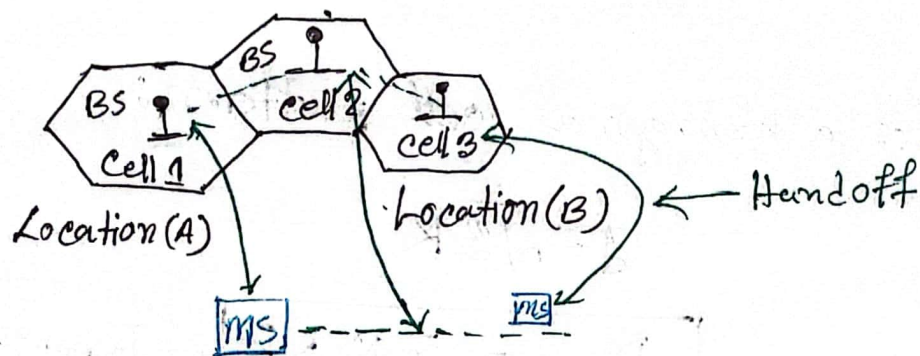 BS
BS
Cell 2
Cell 1
Cell 3
Location (A)
Location (B)
Handoff
MS
MS